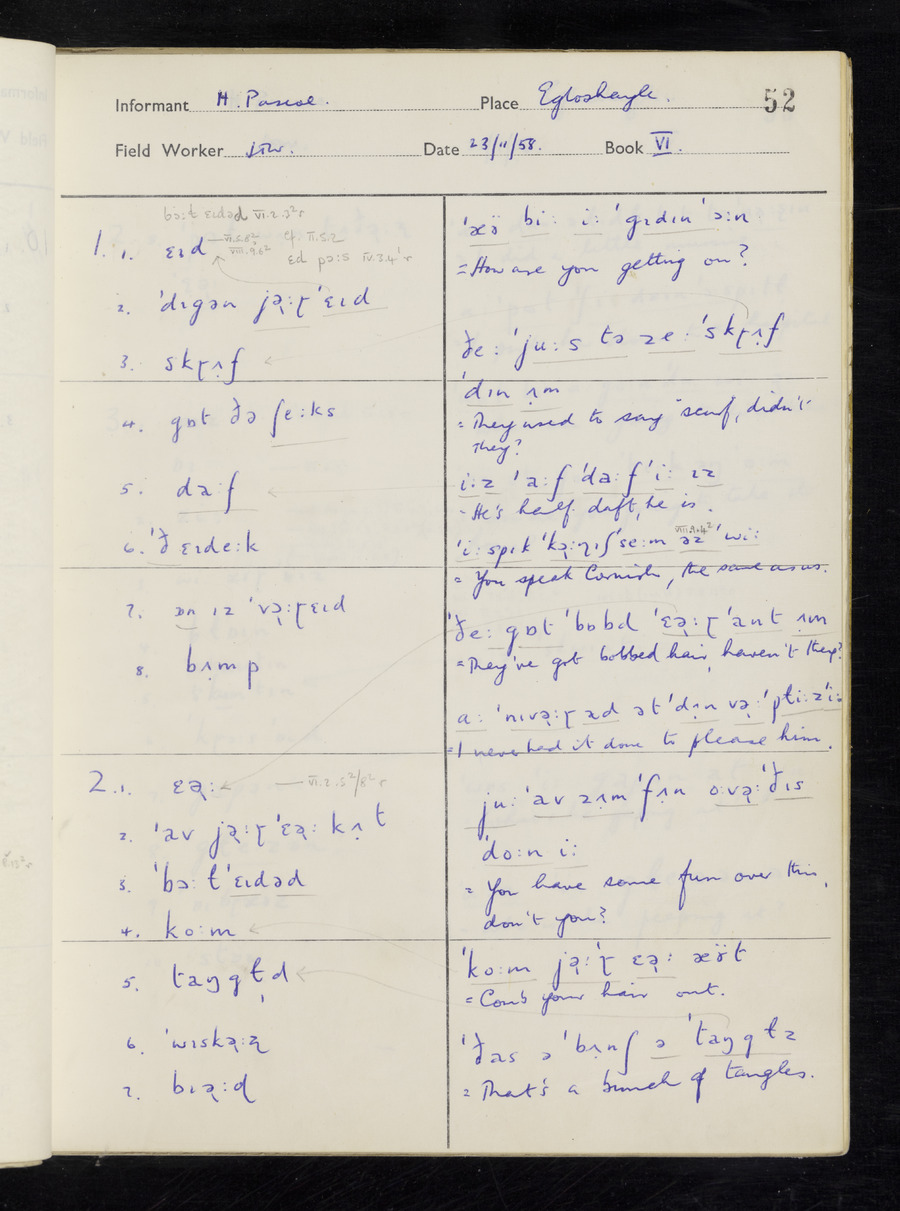 Informant H. Pascoe. Place Egloshayle. 52
Field Worker Date 23/11/58. Book VI.
bɔːt ɛɪdəd VI.2.3² r
1. 1. ɛɪd VI.5.8² cf. II.5.2
VIII.9.6² ɛd pɔːs IV.3.4¹ r
2. ˈdɪgən jə̣ːɽˈɛɪd
3. skɽʌ̣f
4. gɒt ðə ʃeːks
5. daːf
6. ˈðɛɪdeːk
7. ɒn ɪz ˈvə̣ːɽɛɪd
8. bʌ̣mp
2. 1. ɛə̣ː VI.2.5²/8² r
2. ˈav jə̣ːɽˈɛə̣ː kʌ̣t
3. ˈbɔːtˈɛɪdəd
4. koːm
5. taŋgɫ̩d
6. ˈwɪskə̣ːʐ
7. bɪə̣ːɖ
ˈæʏ̈ biː iː ˈgɪdɪnˈɔːn
= How are you getting on?
ðeː ˈjuːs tə zeː ˈskɽʌ̣f
ˈdɪn ʌ̣m
= They used to say "scurf", didn't
they?
iːz ˈaːf ˈdaːf ˈiː ɪz
= He's half daft, he is.
VIII.9.4²
ˈiː spɪk ˈkə̣ːɳɪʃ ˈseːm əz ˈwiː
= You speak Cornish, the same as us.
ˈðeː gɒt ˈbɒbd ˈɛə̣ːɽ ˈant ʌ̣m
= They've got bobbed hair, haven't they?
aː ˈnɪvə̣ːɽ æd ət ˈdʌ̣n və̣ː ˈpɫiːzˈiː
= I never had it done to please him.
juː ˈav zʌ̣m ˈfʌ̣n oːvə̣ː ˈðɪs
ˈdoːn iː
= You have some fun over this,
don't you?
ˈkoːm jə̣ːˈɽ ɛə̣ː æʏ̈t
= Comb your hair out.
ˈðas ə ˈbʌ̣nʃ ə ˈtaŋgɫz
= That's a bunch of tangles.